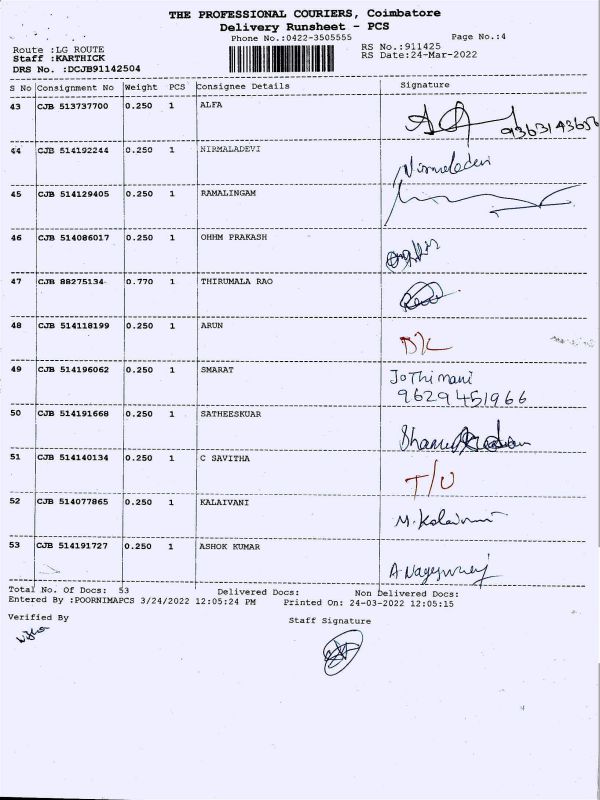 THE PROFESSIONAL COURIERS, Coimbatore
Delivery Runsheet - PCS
Phone No.:0422-3505555
Page No.:4
Route :LG ROUTE
RS No.:911425
Staff :KARTHICK
RS Date:24-Mar-2022
DRS No. :DCJB91142504
S No Consignment No Weight PCS Consignee Details Signature
43 CJB 513737700 0.250 1 ALFA
44 CJB 514192244 0.250 1 NIRMALADEVI Nirmaladevi
45 CJB 514129405 0.250 1 RAMALINGAM
46 CJB 514086017 0.250 1 OHHM PRAKASH
47 CJB 88275134 0.770 1 THIRUMALA RAO
48 CJB 514118199 0.250 1 ARUN D/L
49 CJB 514196062 0.250 1 SMARAT Jothimani
9629451966
50 CJB 514191668 0.250 1 SATHEESKUAR
51 CJB 514140134 0.250 1 C SAVITHA T/U
52 CJB 514077865 0.250 1 KALAIVANI M. Kalaivani
53 CJB 514191727 0.250 1 ASHOK KUMAR
Total No. Of Docs: 53 Delivered Docs: Non Delivered Docs:
Entered By :POORNIMAPCS 3/24/2022 12:05:24 PM Printed On: 24-03-2022 12:05:15
Verified By Staff Signature